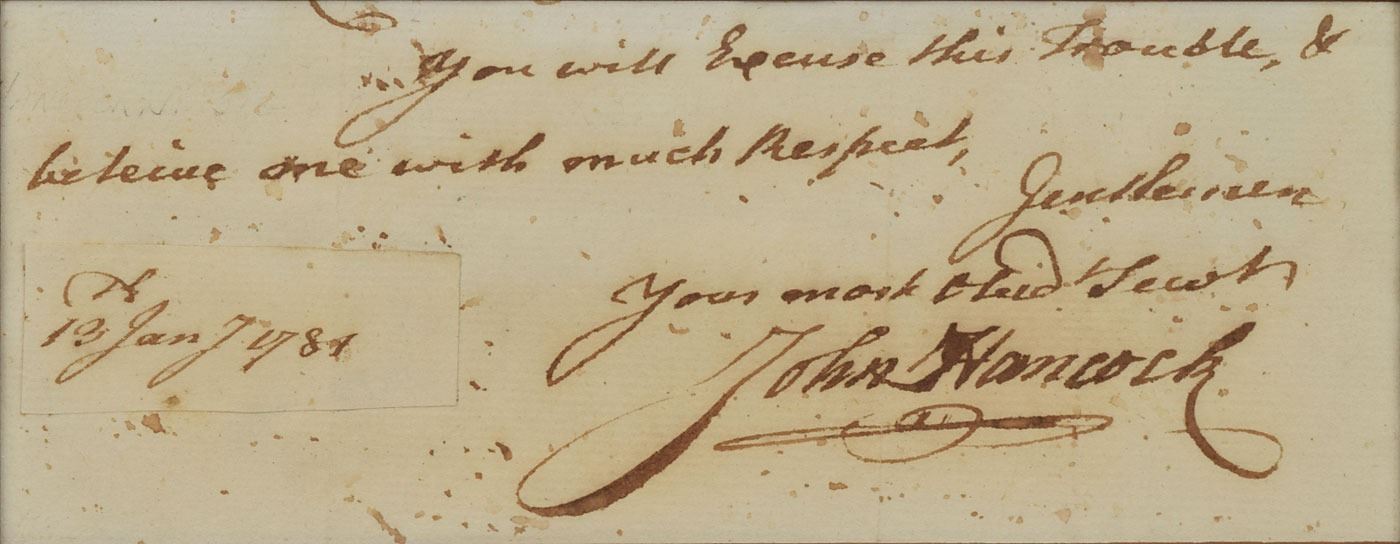 You will Excuse this Trouble, &
beleive me with much Respect,
Gentlemen
Your most Obedt Servt
John Hancock
13 Jany 1781